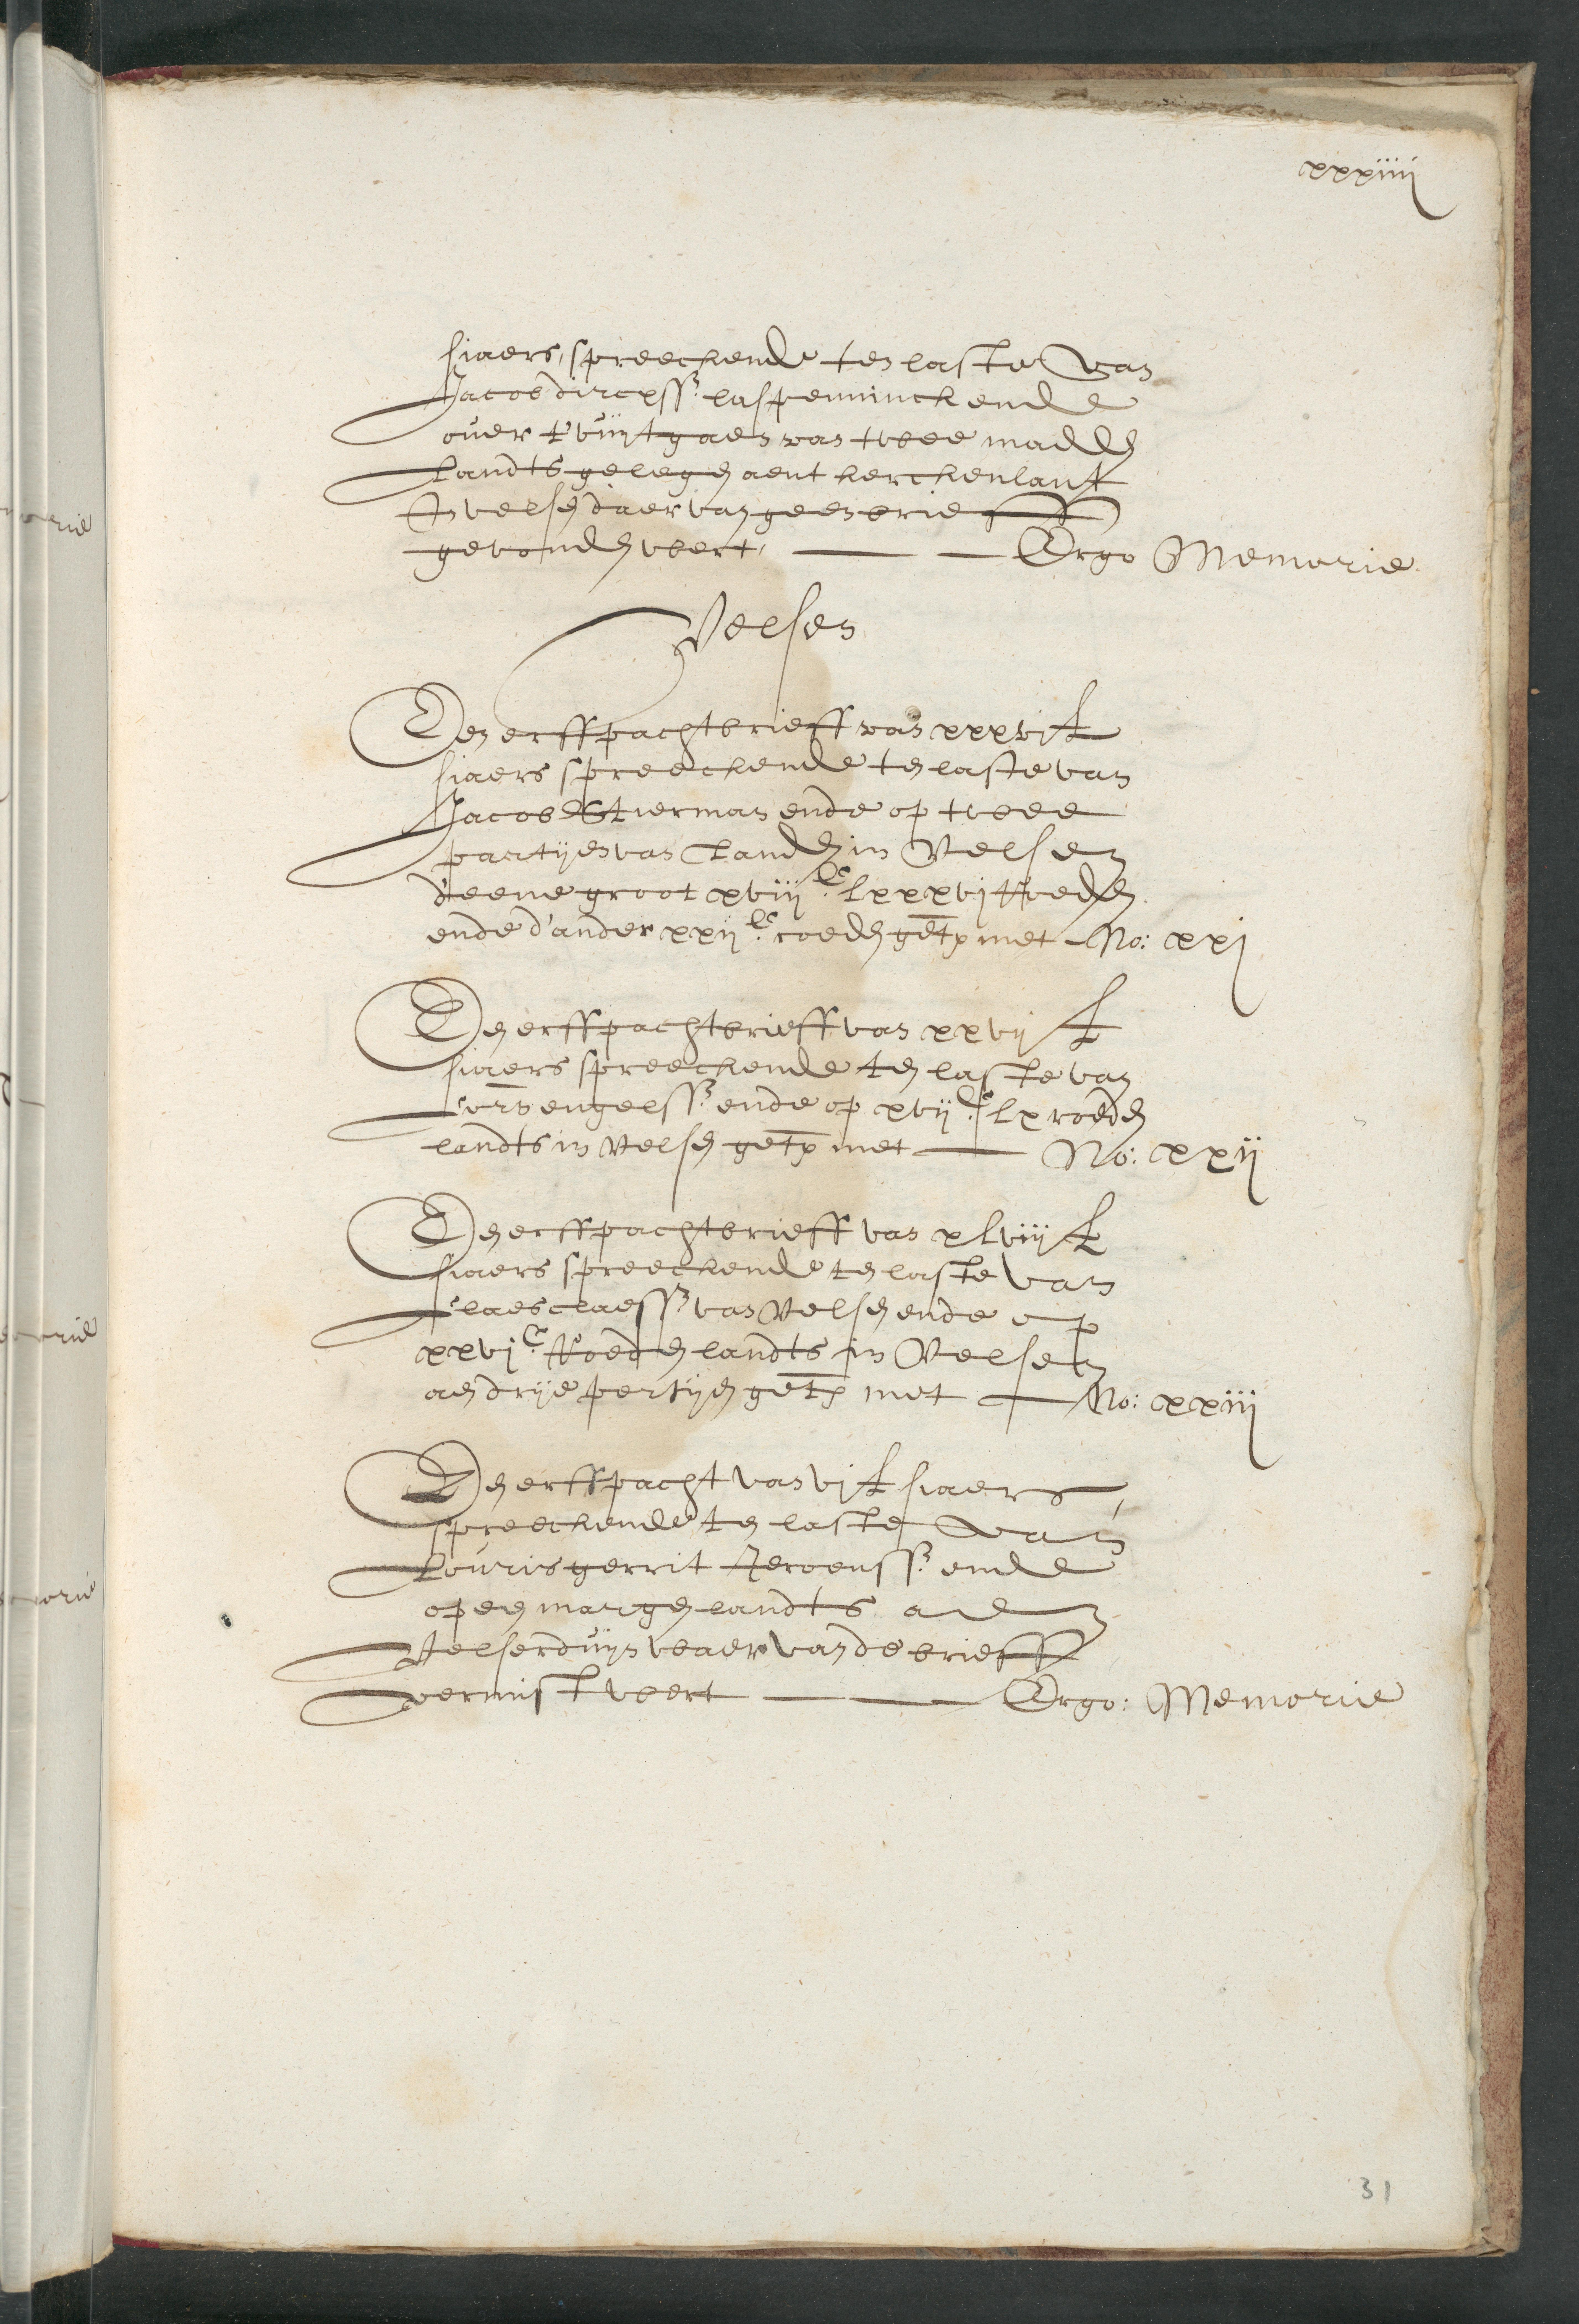 xxxiiii
siaers, spreeckende ten laste van
Jacob dircxss. laspenninck ende
over t'vuijtgaen van twee madden
Landts gelegen aent kerckenlant
In velsen daer van geen brieff
gevonden wert, — — Ergo Memorie
Velsen
Een erffpachtbrieff van xxxvj £
siaers spreeckende ten laste van
Jacob Stierman ende op twee
partijen van Landen in Velsen
d'eene groot xviij c. lxxxvj Roeden
ende d'ander xxij c. roeden getx met No: xxj
Een erffpachtbrieff van xxvij £
siaers spreeckende ten laste van
Cors engelss. ende op xvij c. lx roeden
landts in Velsen getx met — No: xxij
Een erffpachtbrieff van xlviij £
siaers spreeckende ten laste van
Claes claess. van Velsen ende op
xxvj c. Roeden landts in Velsen
aen drije pertijen getx met — No: xxiij
Een erffpacht van vj £ siaers,
spreeckende ten laste van
Louris gerrit Jeroenss. ende
op een margen landts aen
Velserduijn waer van de brieff
vermist wert — — Ergo: Memorie
31